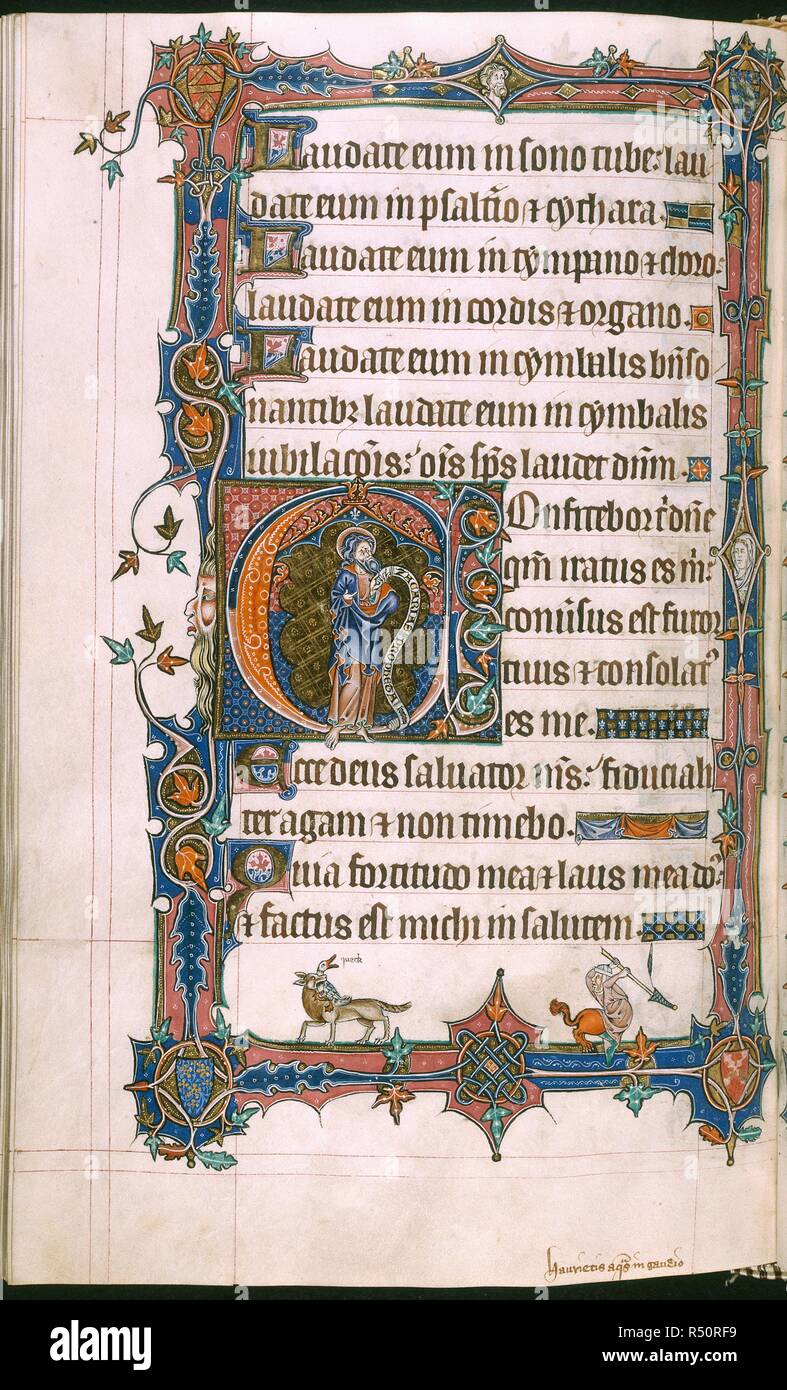 Laudate eum in sono tube: lau
date eum in psalt̄io ⁊ cythara.
Laudate eum in tympano ⁊ choro:
laudate eum in cordis ⁊ organo.
Laudate eum in cymbalis bn̄so
nantibꝫ laudate eum in cymbalis
iubilac̄ōis: om̄s sp̄s laudet dn̄m.
Confitebor t̄ dn̄e
qm̄ iratus es m̄:
conūsus est furor
tuus ⁊ consolatꝰ
es me.
Ecce deus saluator m̄s: fiduciali
ter agam ⁊ non timebo.
Quia fortitudo mea ⁊ laus mea do᷒
⁊ factus est michi in salutem.
queck
haurietis aq̄s in gaudio
alamy
Image ID: R50RF9
www.alamy.com